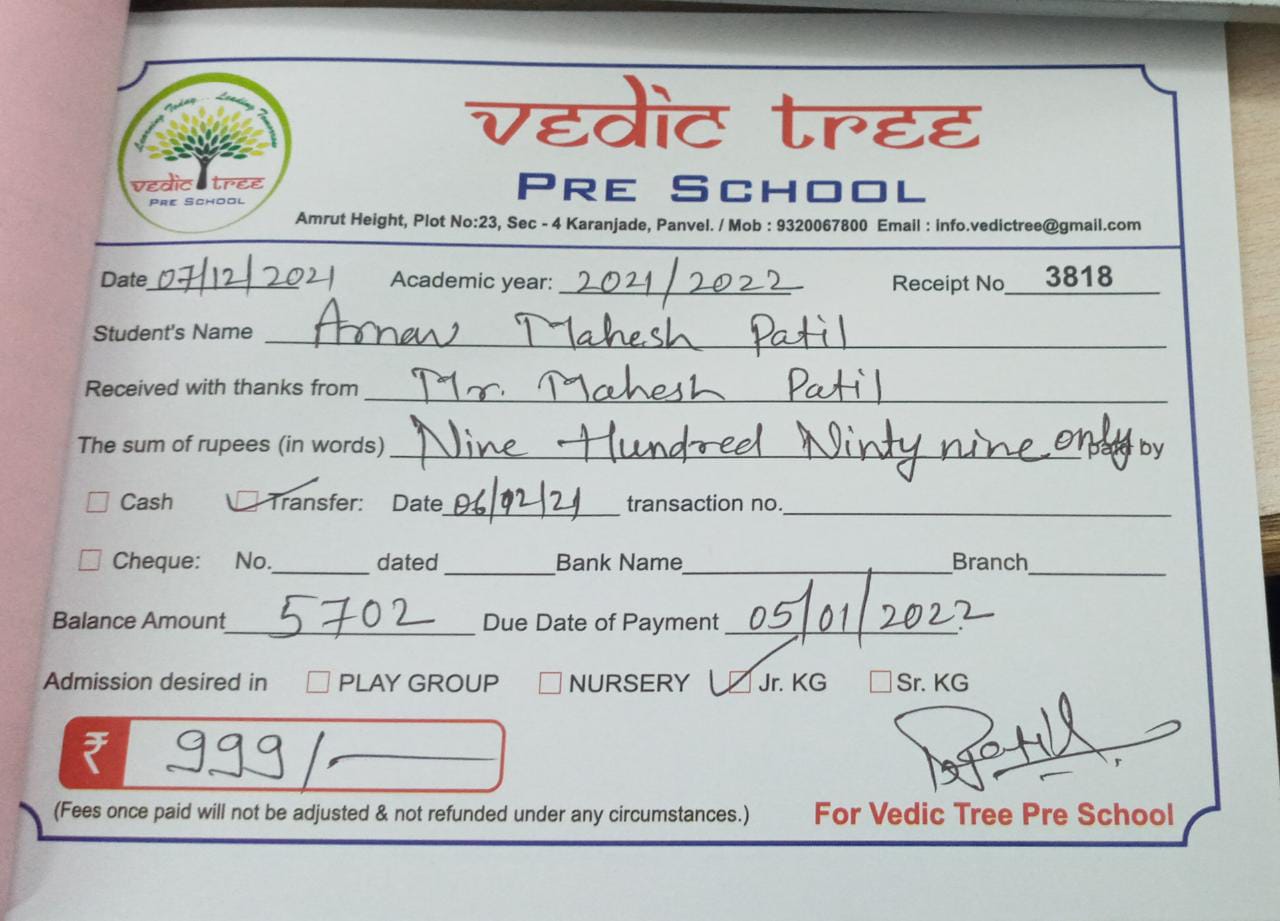 Learning Today... Leading Tomorrow
vedic tree
PRE SCHOOL
vedic tree
PRE SCHOOL
Amrut Height, Plot No:23, Sec - 4 Karanjade, Panvel. / Mob : 9320067800 Email : info.vedictree@gmail.com
Date 07/12/2021 Academic year: 2021/2022 Receipt No 3818
Student's Name Arnav Mahesh Patil
Received with thanks from Mr. Mahesh Patil
The sum of rupees (in words) Nine Hundred Ninty nine only paid by
Cash Transfer: Date 06/12/21 transaction no.
Cheque: No. dated Bank Name Branch
Balance Amount 5702 Due Date of Payment 05/01/2022
Admission desired in PLAY GROUP NURSERY Jr. KG Sr. KG
₹ 999/-
(Fees once paid will not be adjusted & not refunded under any circumstances.) For Vedic Tree Pre School